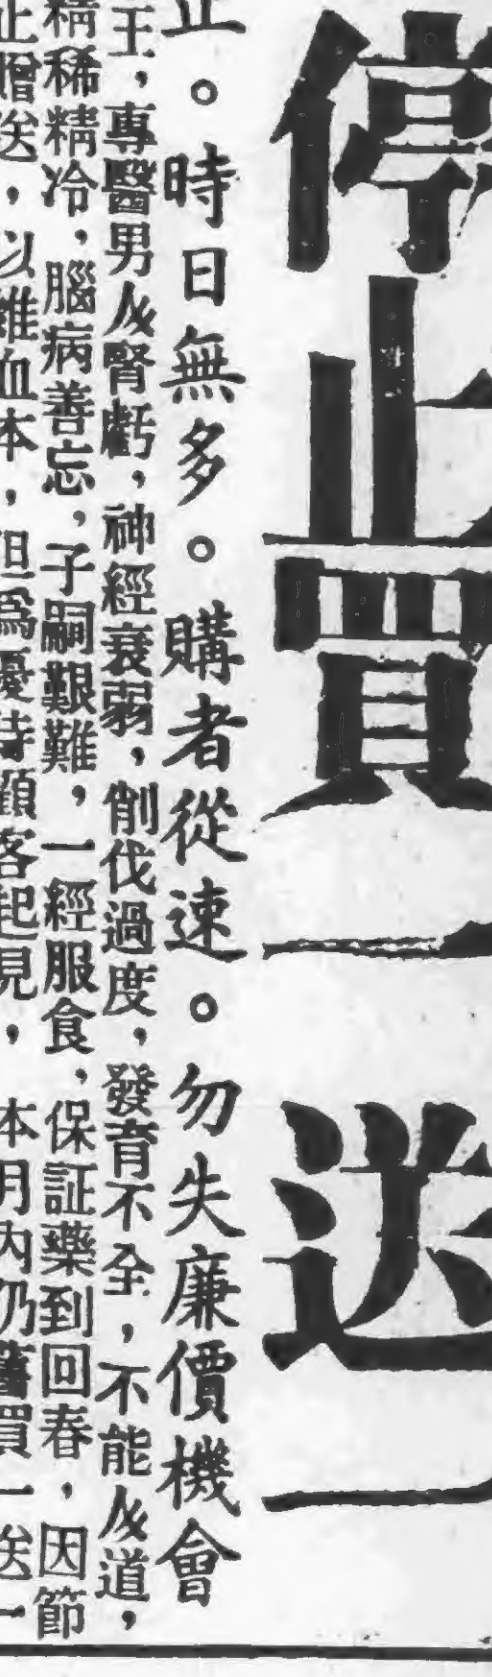 停止買一送一
止。時日無多。購者從速。勿失廉價機會
王，專醫男人腎虧，神經衰弱，削伐過度，發育不全，不能人道，
精稀精冷，腦病善忘，子嗣艱難，一經服食，保証藥到回春，因節
止贈送，以維血本，但爲優待顧客起見，本月內仍舊買一送一